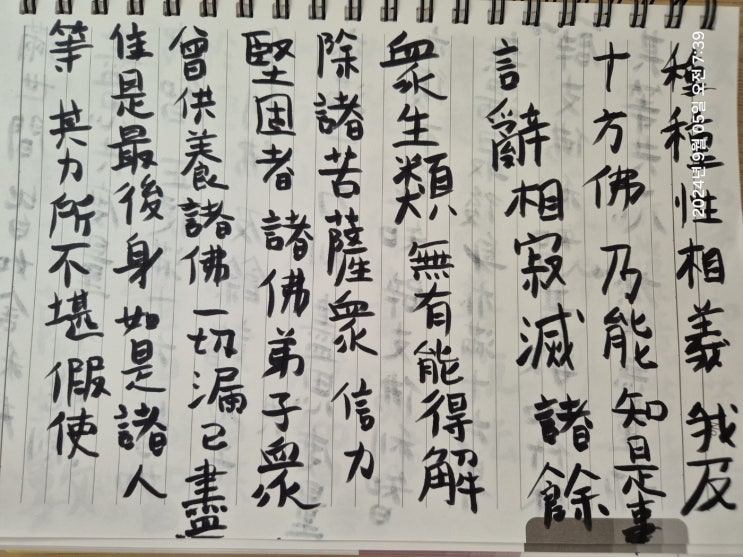 種種性相義 我及
十方佛 乃能知是事
言辭相寂滅 諸餘
衆生類 無有能得解
除諸苦薩衆 信力
堅固者 諸佛弟子衆
曾供養諸佛 一切漏已盡
住是最後身 如是諸人
等 其力所不堪 假使
2024년 9월 05일 오전 7:39